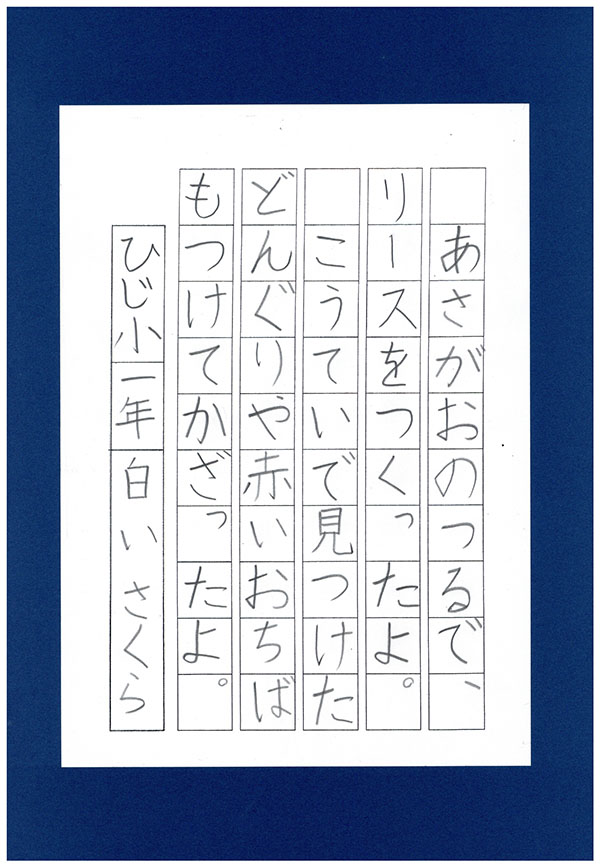 あさがおのつるで、
リースをつくったよ。
　こうていで見つけた
どんぐりや赤いおちば
もつけてかざったよ。
ひじ小一年白いさくら